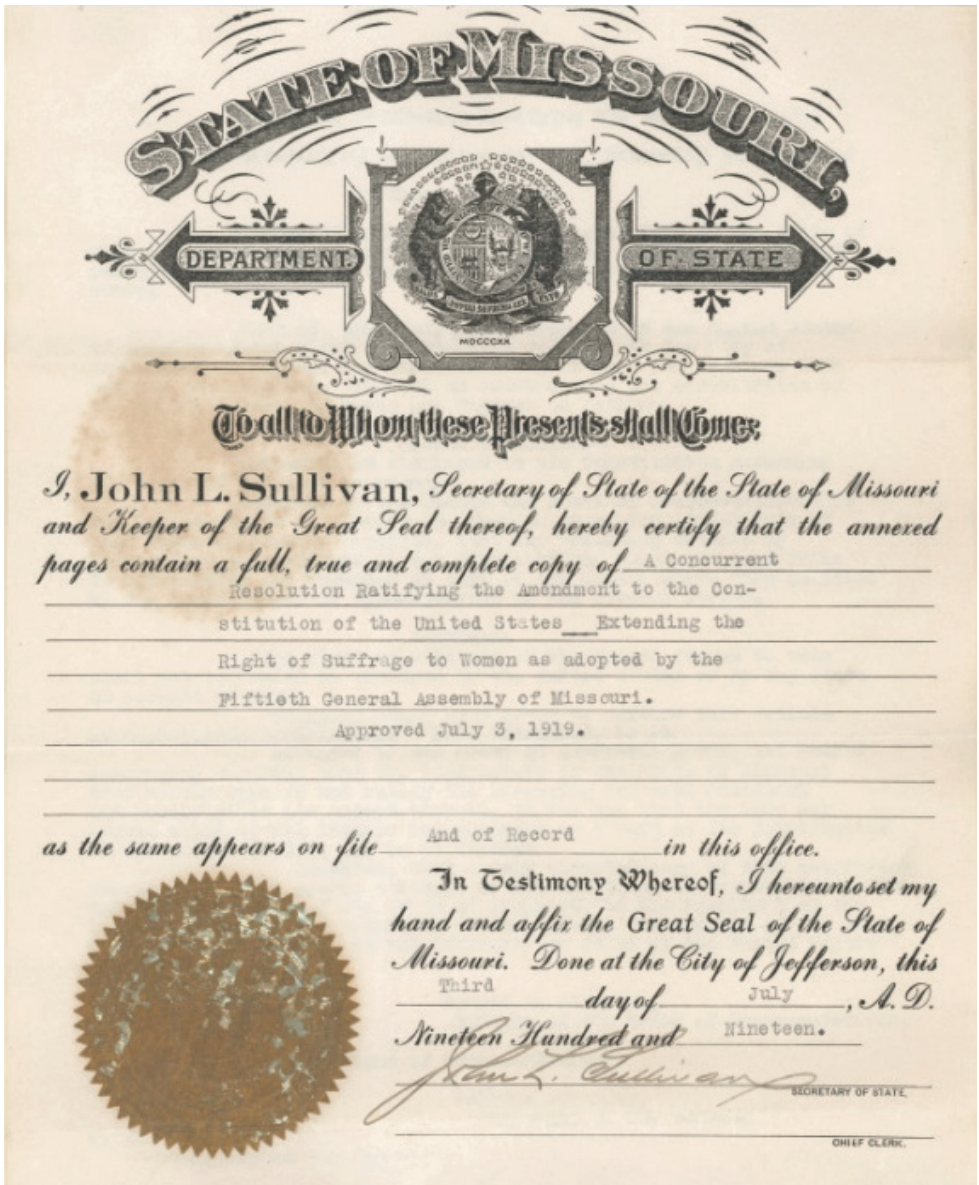 STATE OF MISSOURI,
DEPARTMENT.
OF STATE
MDCCCXX
To all to Whom these Presents shall Come:
I, John L. Sullivan, Secretary of State of the State of Missouri
and Keeper of the Great Seal thereof, hereby certify that the annexed
pages contain a full, true and complete copy of A Concurrent
Resolution Ratifying the Amendment to the Con-
stitution of the United States__Extending the
Right of Suffrage to Women as adopted by the
Fiftieth General Assembly of Missouri.
Approved July 3, 1919.
as the same appears on file And of Record in this office.
In Testimony Whereof, I hereunto set my
hand and affix the Great Seal of the State of
Missouri. Done at the City of Jefferson, this
Third day of July, A. D.
Nineteen Hundred and Nineteen.
John L. Sullivan
SECRETARY OF STATE.
CHIEF CLERK.